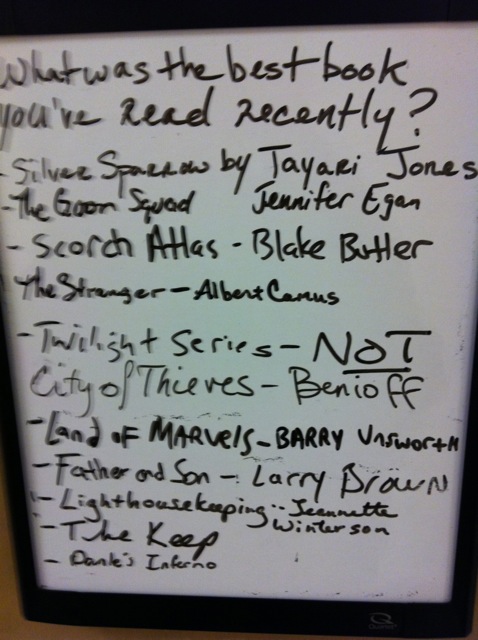 What was the best book
you've read recently?
- Silver Sparrow by Tayari Jones
- The Goon Squad Jennifer Egan
- Scorch Atlas - Blake Butler
The Stranger - Albert Camus
- Twilight Series - NOT
City of Thieves - Benioff
- Land of MARVELS - BARRY Unsworth
- Father and Son - Larry Brown
- Lighthousekeeping - Jeannette
Winterson
- The Keep
- Dante's Inferno